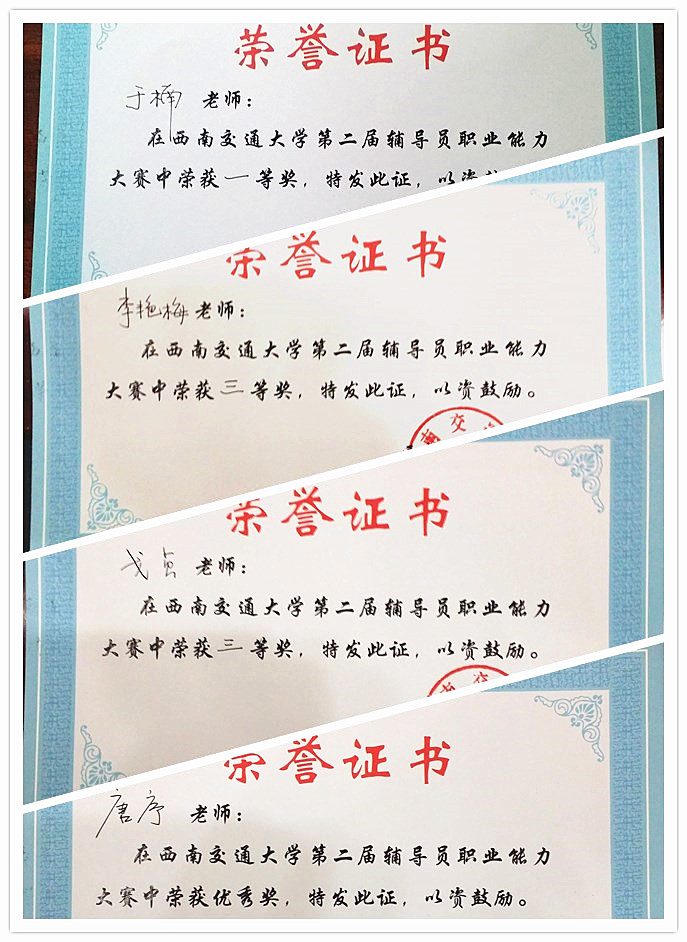 荣誉证书
于楠 老师：
在西南交通大学第二届辅导员职业能力
大赛中荣获一等奖，特发此证，以资
荣誉证书
李艳梅老师：
在西南交通大学第二届辅导员职业能力
大赛中荣获三等奖，特发此证，以资鼓励。
南交
荣誉证书
戈贞 老师：
在西南交通大学第二届辅导员职业能力
大赛中荣获三等奖，特发此证，以资鼓励。
南交
荣誉证书
唐序 老师：
在西南交通大学第二届辅导员职业能力
大赛中荣获优秀奖，特发此证，以资鼓励。